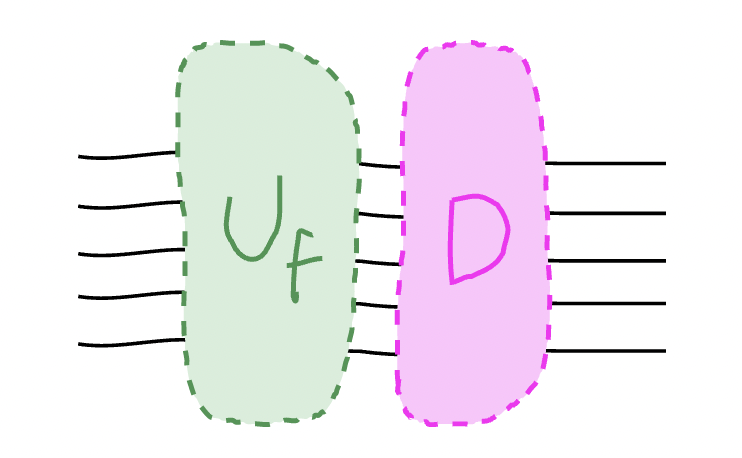 Uf
D